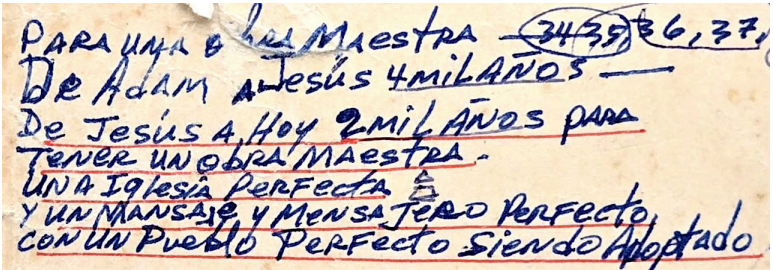 PARA UNA obra Maestra - 34-35, 36, 37,
De Adam a Jesús 4 mil AÑOS —
De Jesús A Hoy 2 mil AÑOS PARA
TENER UN OBRA MAestRA.
UNA Iglesia Perfecta
Y UN MANSAJe y MeNsaJeRO PeRFecto,
CON UN Pueblo PeRFecto Siendo Adoptado